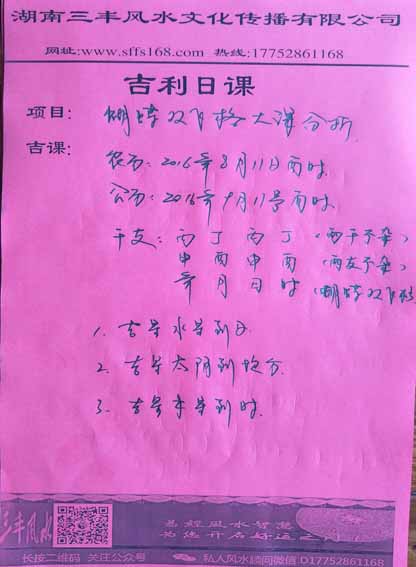 湖南三丰风水文化传播有限公司
网址:www.sffs168.com 热线:17752861168
吉利日课
项目: 蝴蝶双飞格大课分析
吉课: 农历:2016年8月11日酉时
公历:2016年9月11号酉时
干支: 丙 丁 丙 丁 (两干不杂)
申 酉 申 酉 (两支不杂)
年 月 日 时 (蝴蝶双飞格
1. 吉星水星到
2. 吉星太阴到
3. 吉星木星到时
三丰风水
易經風水智慧
為您开启好运之门
长按二维码 关注公众号
私人风水顾问微信 D17752861168